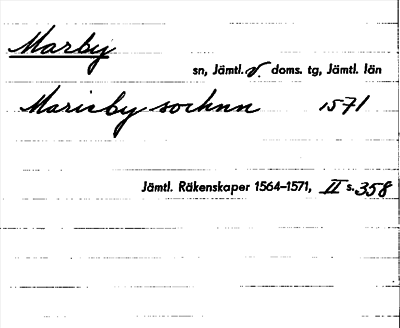 Marby
sn, Jämtl. v. doms. tg, Jämtl. län
Maricby sochnn 1571
Jämtl. Räkenskaper 1564–1571, II s. 358